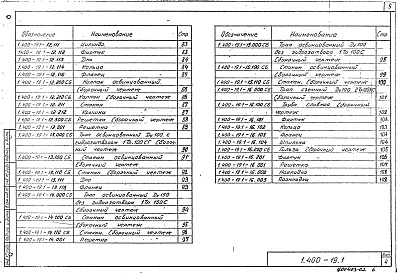 5
Обозначение Наименование Стр
1.400-19.1-12.111 Цилиндр 83
1.400-19.1-12.112 Фланец 83
1.400-19.1-12.113 Дно 84
1.400-19.1-12.114 Кольцо 84
1.400-19.1-12.115 Фланец 85
1.400-19.1-12.200 СБ Колпак освинцованный
Сборочный чертеж 85
1.400-19.1-12.210 СБ Колпак. Сборочный чертеж 86
1.400-19.1-12.211 Стакан 87
1.400-19.1-12.212 Крышка 87
1.400-19.1-12.300 СБ Решетка. Сборочный чертеж 88
1.400-19.1-12.301 Решетка 89
1.400-19.1-13.000 СБ Трап освинцованный Ду 100, с
гидрозатвором СБ Сборочный
чертеж 90
1.400-19.1-13.100 СБ Стакан освинцованный 91
Сборочный чертеж
1.400-19.1-13.110 СБ Стакан Сборочный чертеж 92
1.400-19.1-13.111 Дно 93
1.400-19.1-13.113 Фланец 93
1.400-19.1-14.000 СБ Трап освинцованный Ду 150
без гидрозатвора
Сборочный чертеж 94
1.400-19.1-14.100 СБ Стакан освинцованный
Сборочный чертеж 95
1.400-19.1-14.110 СБ Стакан. Сборочный чертеж 96
1.400-19.1-14.001 Решетка 97
Обозначение Наименование Стр
1.400-19.1-15.000 СБ Трап освинцованный Ду 100
без гидрозатвора
Сборочный чертеж 98
1.400-19.1-15.100 СБ Стакан освинцованный
Сборочный чертеж 99
1.400-19.1-15.110 СБ Стакан. Сборочный чертеж 100
1.400-19.1-16.000 СБ Трап съемный Ду 100
Сборочный чертеж 101
1.400-19.1-16.100 СБ Труба сливная Сборочный
чертеж 102
1.400-19.1-16.101 103
1.400-19.1-16.102 Кольцо 103
1.400-19.1-16.103 Фланец 104
1.400-19.1-16.104 Шпилька 104
1.400-19.1-16.200 СБ Гильза Сборочный чертеж 105
1.400-19.1-16.201 106
1.400-19.1-16.001 Решетка 106
1.400-19.1-16.002 Прокладка 108
1.400-19.1-16.003 Прокладка 108
1.400-19.1
Лист
4
6